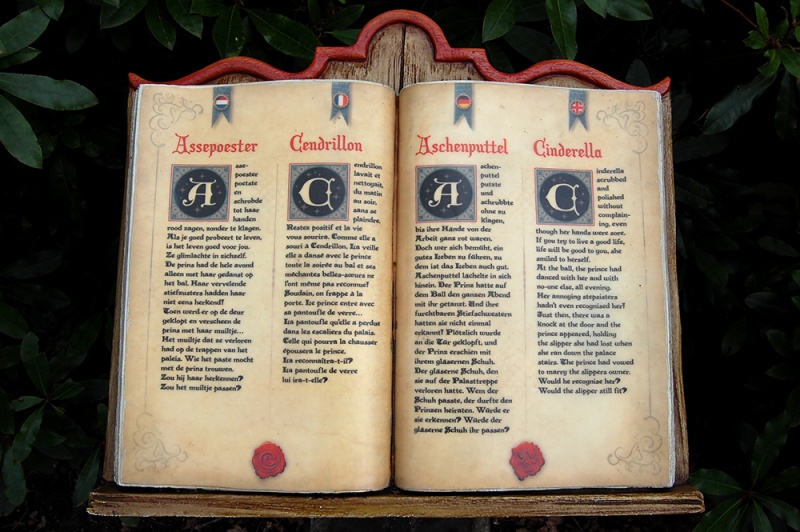 Assepoester
A
asse-
poester
poetste
en
schrobde
tot haar
handen
rood zagen, zonder te klagen.
Als je goed probeert te leven,
is het leven goed voor jou.
Ze glimlachte in zichzelf.
De prins had de hele avond
alleen met haar gedanst op
het bal. Haar vervelende
stiefzusters hadden haar
niet eens herkend!
Toen werd er op de deur
geklopt en verscheen de
prins met haar muiltje...
Het muiltje dat ze verloren
had op de trappen van het
paleis. Wie het paste mocht
met de prins trouwen.
Zou hij haar herkennen?
Zou het muiltje passen?
Cendrillon
C
endrillon
lavait et
nettoyait,
du matin
au soir,
sans se
plaindre.
Restes positif et la vie
vous sourira. Comme elle a
souri à Cendrillon. La veille
elle a dansé avec le prince
toute la soirée au bal et ses
méchantes belles-sœurs ne
l'ont même pas reconnue!
Soudain, on frappe à la
porte. Le prince entre avec
sa pantoufle de verre...
La pantoufle qu'elle a perdue
dans les escaliers du palais.
Celle qui pourra la chausser
épousera le prince.
La reconnaîtra-t-il?
La pantoufle de verre
lui ira-t-elle?
Aschenputtel
A
schen-
puttel
putzte
und
schrubbte
ohne zu
klagen,
bis ihre Hände von der
Arbeit ganz rot waren.
Doch wer sich bemüht, ein
gutes Leben zu führen, zu
dem ist das Leben auch gut.
Aschenputtel lächelte in sich
hinein. Der Prinz hatte auf
dem Ball den ganzen Abend
mit ihr getanzt. Und ihre
furchtbaren Stiefschwestern
hatten sie nicht einmal
erkannt! Plötzlich wurde
an die Tür geklopft, und
der Prinz erschien mit
ihrem gläsernen Schuh.
Der gläserne Schuh, den
sie auf der Palasttreppe
verloren hatte. Wem der
Schuh passte, der durfte den
Prinzen heiraten. Würde er
sie erkennen? Würde der
gläserne Schuh ihr passen?
Cinderella
C
inderella
scrubbed
and
polished
without
complain-
ing, even
though her hands were sore.
If you try to live a good life,
life will be good to you, she
smiled to herself.
At the ball, the prince had
danced with her and with
no-one else, all evening.
Her annoying stepsisters
hadn't even recognised her!
Just then, there was a
knock at the door and the
prince appeared, holding
the slipper she had lost when
she ran down the palace
stairs. The prince had vowed
to marry the slippers owner.
Would he recognise her?
Would the slipper still fit?